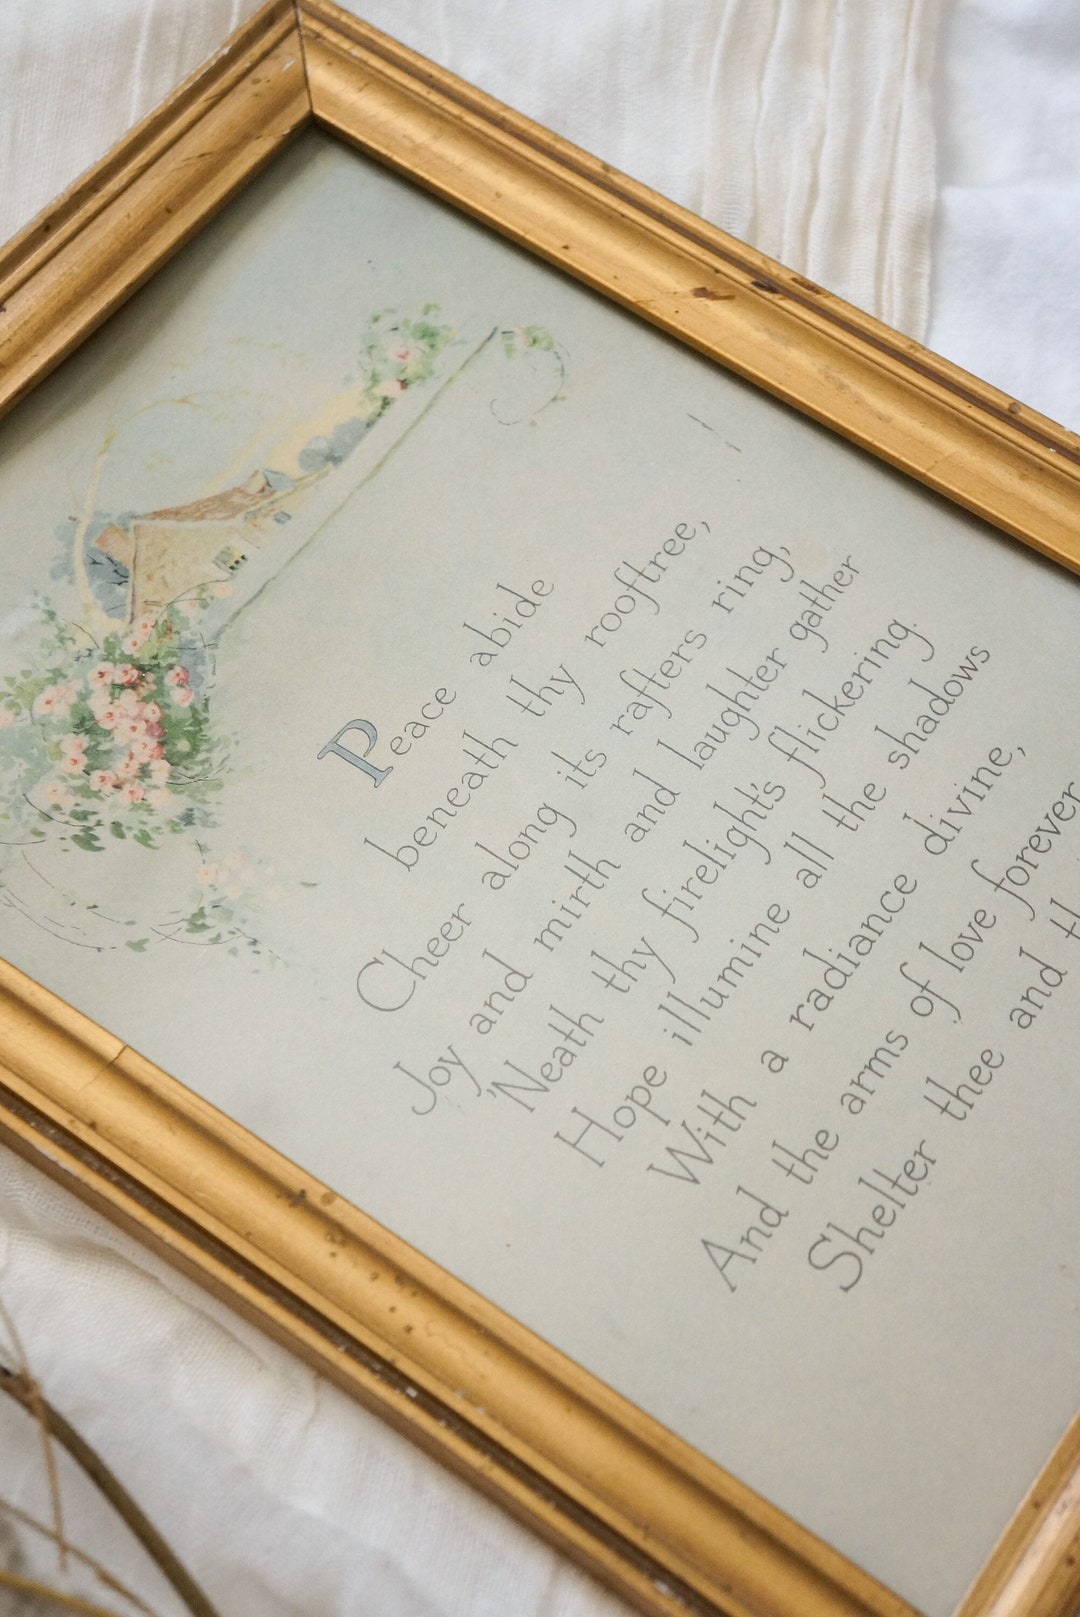 Peace abide
beneath thy rooftree,
Cheer along its rafters ring,
Joy and mirth and laughter gather
'Neath thy firelight's flickering.
Hope illumine all the shadows
With a radiance divine,
And the arms of love forever
Shelter thee and